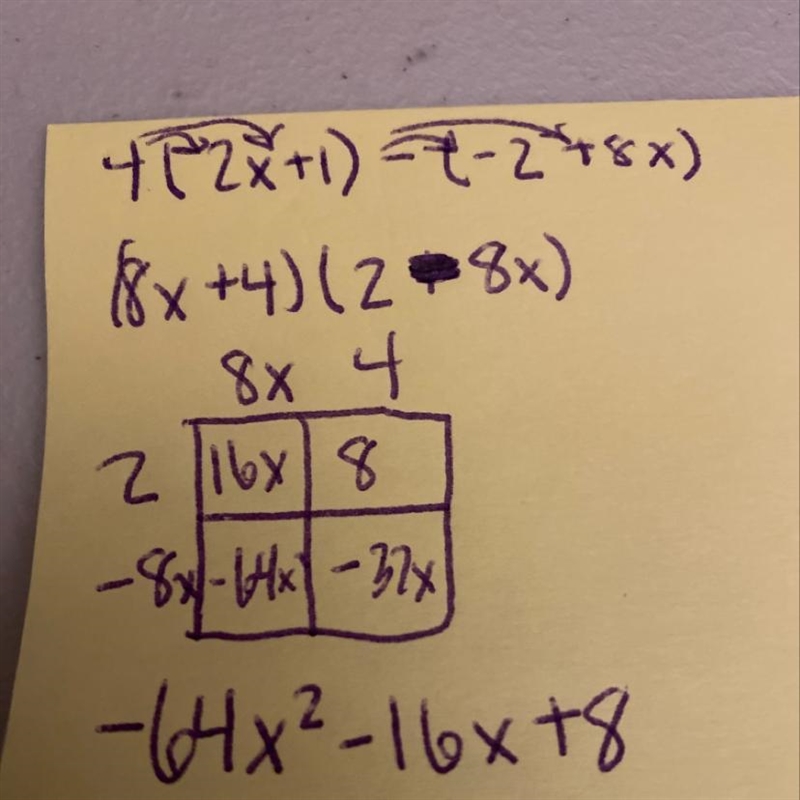 4(2x+1) -(-2+8x)
(8x+4)(2-8x)
8x 4
2 16x 8
-8x -64x² -32x
-64x²-16x+8